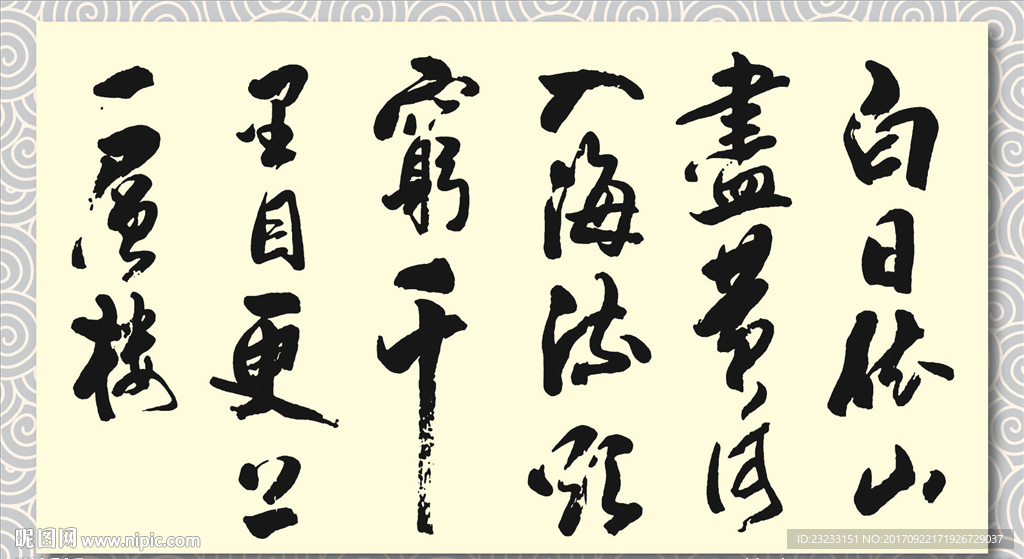 白日依山
盡黄河
入海流欲
窮千
里目更上
一層樓
昵图网 www.nipic.com
ID:23233151 NO:20170922171926729037